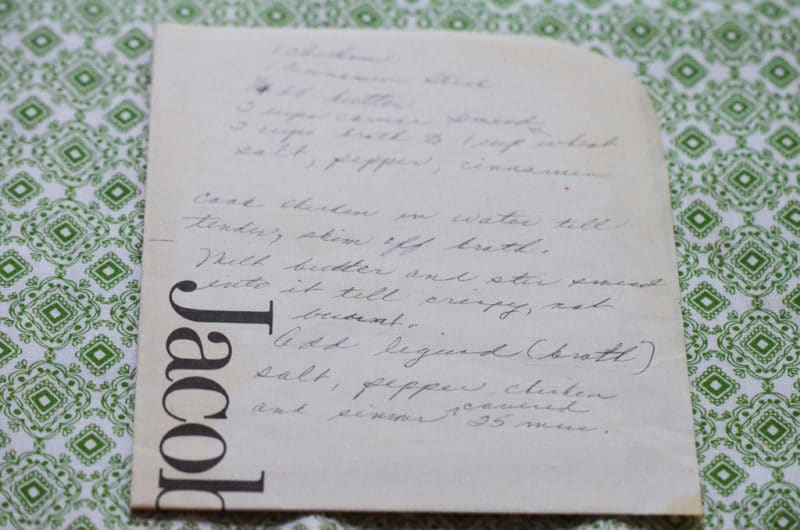 1 chicken
1 cinnamon stick
lb butter
3 cups coarse smeed
2 cups broth to 1 cup wheat
salt, pepper, cinnamon
cook chicken in water till
tender, skim off broth.
Melt butter and stir smeed
into it till crispy, not
burnt.
Add liquid (broth)
salt, pepper, chicken
and simmer covered 25 min.
Jacob